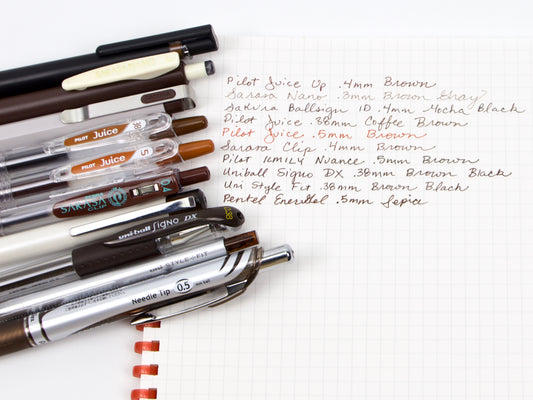 Pilot Juice Up .4mm Brown
Sarasa Nano .3mm Brown Gray
Sakura Ballsign iD .4mm Mocha Black
Pilot Juice .38mm Coffee Brown
Pilot Juice .5mm Brown
Sarasa Clip .4mm Brown
Pilot ILMILY Nuance .5mm Brown
Uniball Signo DX .38mm Brown Black
Uni Style Fit .38mm Brown Black
Pentel EnerGel .5mm Sepia
PILOT Juice 038
PILOT Juice 05
SARASA CLIP 0.4
uni-ball SigNO DX 0.38
STYLE FIT
Needle Tip 0.5